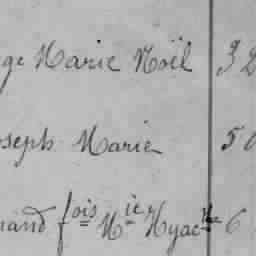 ge Marie Noël 32
oseph Marie 50
nand fois Mie Hyacte 6